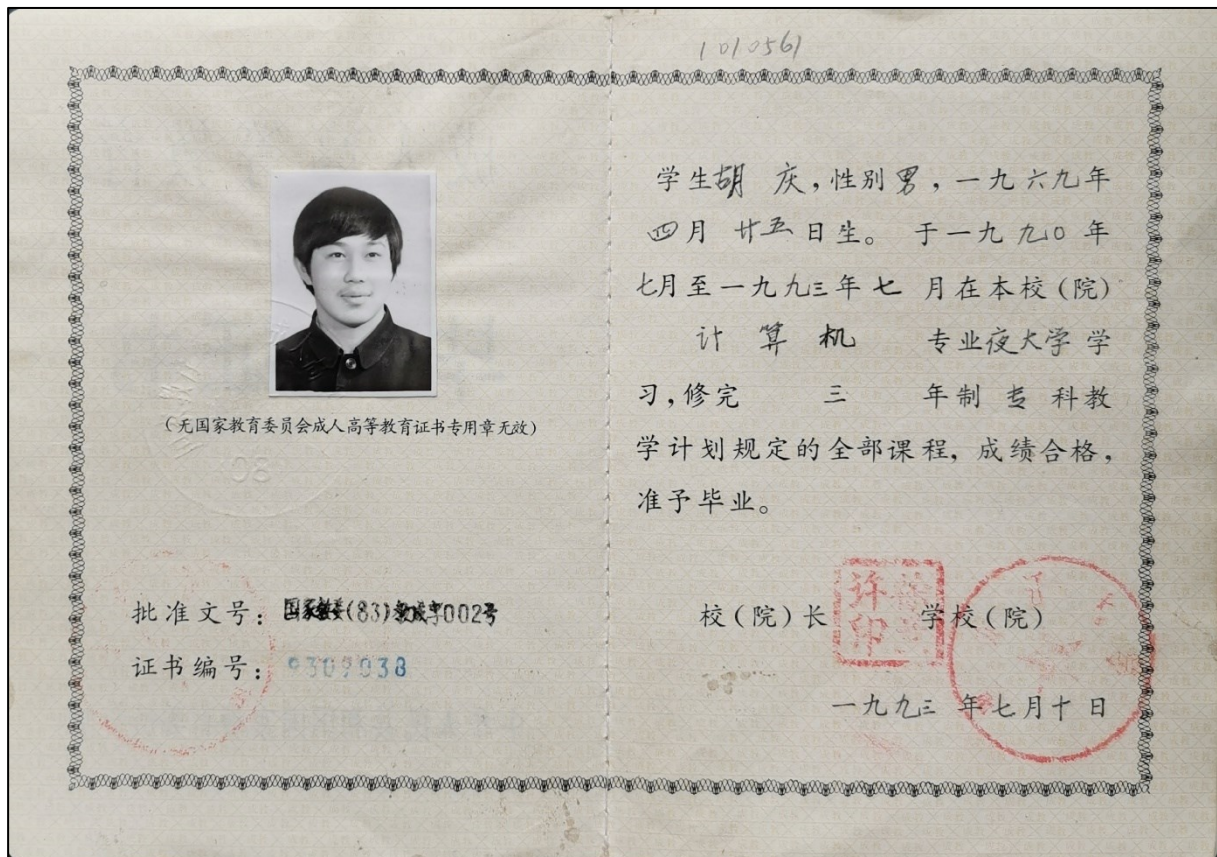 1010561
(无国家教育委员会成人高等教育证书专用章无效)
08
批准文号: 国家教委(83)教成字002号
证书编号: 9309038
学生胡 庆,性别男,一九六九年
四月 廿五日生。于一九九〇年
七月至一九九三年七 月在本校(院)
计 算 机 专业夜大学 学
习,修完 三 年制 专 科教
学计划规定的全部课程,成绩合格,
准予毕业。
校(院)长 学校(院)
许
印
一九九三 年七月十日